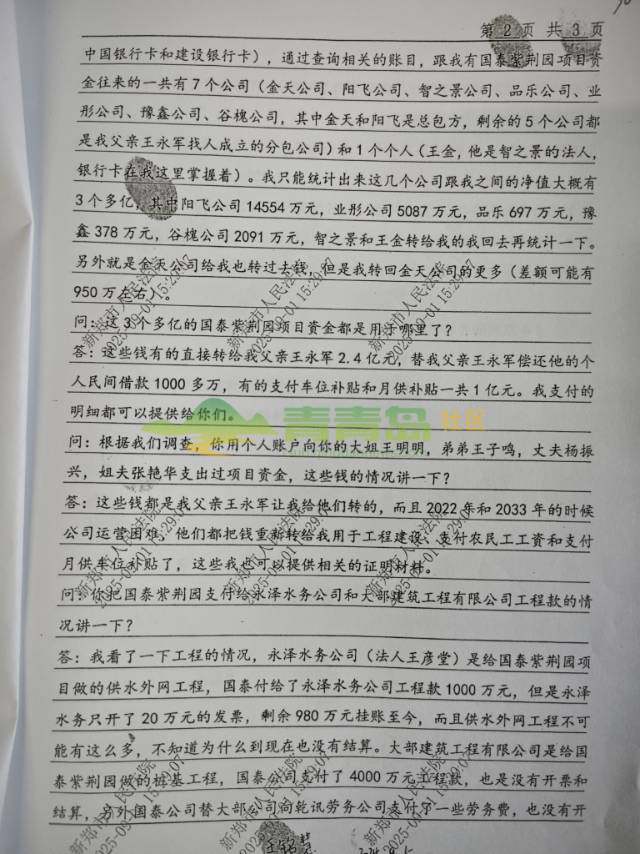 第 2 页 共 3 页
中国银行卡和建设银行卡），通过查询相关的账目，跟我有国泰紫荆园项目资
金往来的一共有 7 个公司（金天公司、阳飞公司、智之景公司、品乐公司、业
彤公司、豫鑫公司、谷槐公司，其中金天和阳飞是总包方，剩余的 5 个公司都
是我父亲王永军找人成立的分包公司）和 1 个个人（王金，他是智之景的法人，
银行卡在我这里掌握着）。我只能统计出来这几个公司跟我之间的净值大概有
3 个多亿，其中阳飞公司 14554 万元，业彤公司 5087 万元，品乐 697 万元，豫
鑫 378 万元，谷槐公司 2091 万元，智之景和王金转给我的我回去再统计一下。
另外就是金天公司给我也转过去钱，但是我转回金天公司的更多（差额可能有
950 万左右）。
问：这 3 个多亿的国泰紫荆园项目资金都是用于哪里了？
答：这些钱有的直接转给我父亲王永军 2.4 亿元，替我父亲王永军偿还他的个
人民间借款 1000 多万，有的支付车位补贴和月供补贴一共 1 亿元。我支付的
明细都可以提供给你们。
青青岛社区
问：根据我们调查，你用个人账户向你的大姐王明明，弟弟王子鸣，丈夫杨振
兴，姐夫张艳华支出过项目资金，这些钱的情况讲一下？
答：这些钱都是我父亲王永军让我给他们转的，而且 2022 年和 2033 年的时候
公司运营困难，他们都把钱重新转给我用于工程建设、支付农民工工资和支付
月供车位补贴了，这些我也可以提供相关的证明材料。
问：你把国泰紫荆园支付给永泽水务公司和大部建筑工程有限公司工程款的情
况讲一下？
答：我看了一下工程的情况，永泽水务公司（法人王彦堂）是给国泰紫荆园项
目做的供水外网工程，国泰付给了永泽水务公司工程款 1000 万元，但是永泽
水务只开了 20 万元的发票，剩余 980 万元挂账至今，而且供水外网工程不可
能有这么多，不知道为什么到现在也没有结算。大部建筑工程有限公司是给国
泰紫荆园做的桩基工程，国泰公司支付了 4000 万元工程款，也是没有开票和
结算，另外国泰公司替大部公司向乾讯劳务公司支付了一些劳务费，也没有开
新郑市人民法院
2025-09-01 15:29:07